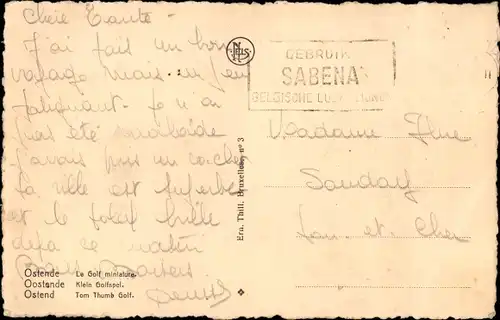 Chère Tante -
J'ai fait un bon
voyage mais un peu
fatiguant. Je n'ai
pas été malade
j'avais pris un cachet
la ville est superbe
et le soleil brille
déjà ce matin
Bons Baisers
NELS
GEBRUIK
SABENA
BELGISCHE
Ern. Thill, Bruxelles, nº 3
Madame
Loir et Cher
Ostende Le Golf miniature.
Oostande Klein Golfspel.
Ostend Tom Thumb Golf.